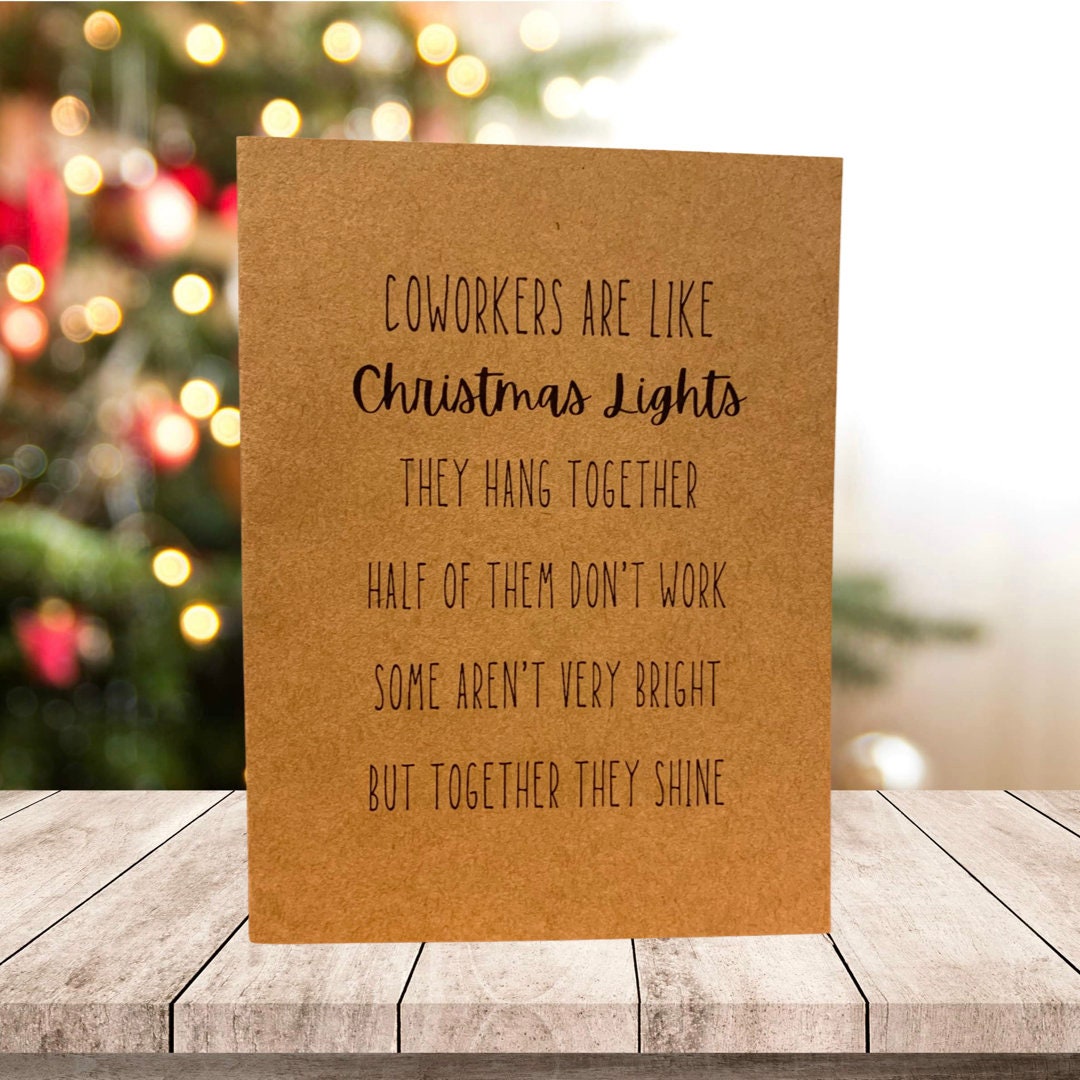 COWORKERS ARE LIKE
Christmas Lights
THEY HANG TOGETHER
HALF OF THEM DON'T WORK
SOME AREN'T VERY BRIGHT
BUT TOGETHER THEY SHINE